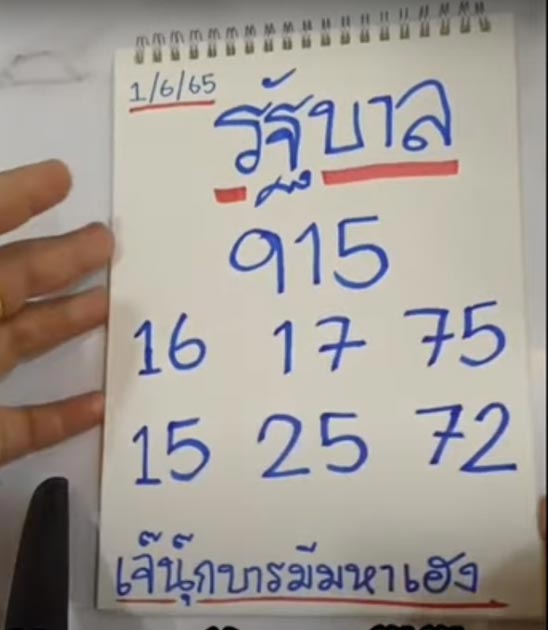 1/6/65
รัฐบาล
915
16 17 75
15 25 72
เจ๊นุ๊กบารมีมหาเฮง